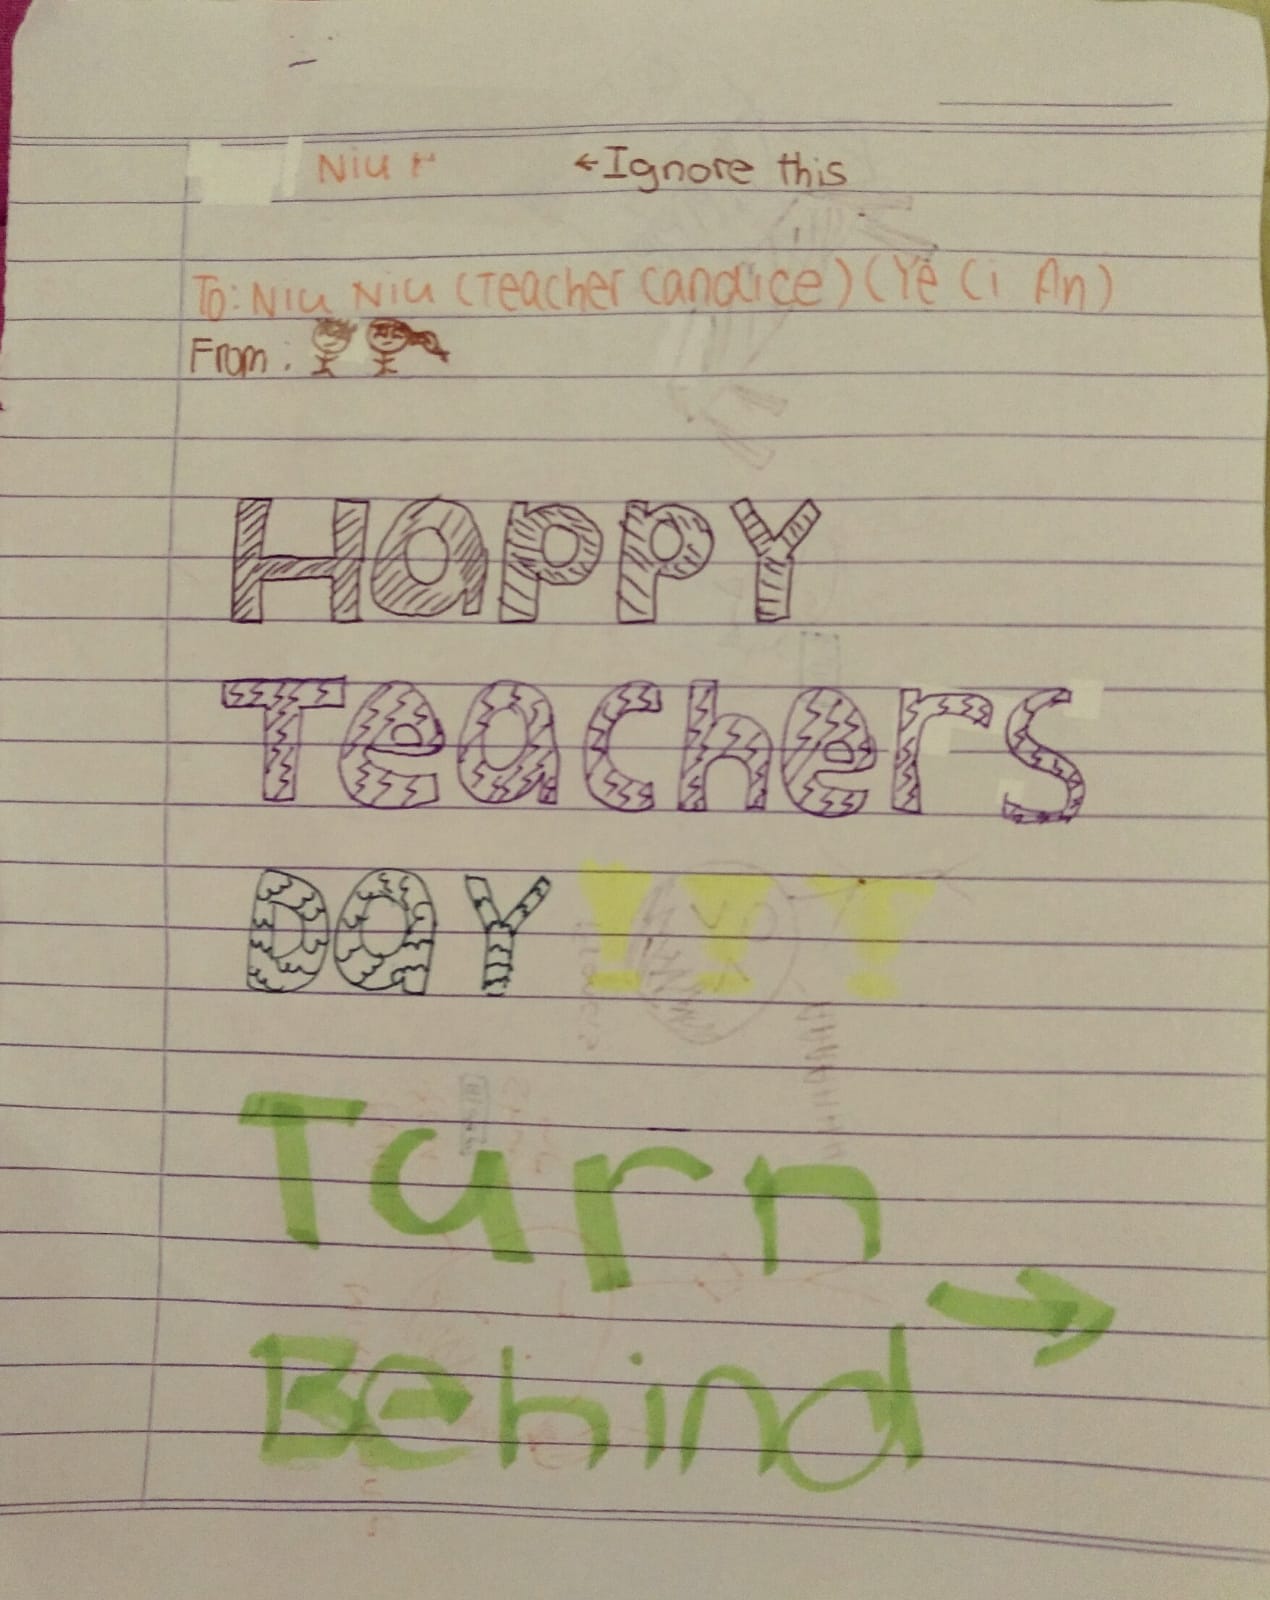 Niu ←Ignore this
To: Niu Niu (Teacher Candice) (Ye Ci An)
From:
Happy
Teachers
Day !!!
Turn
Behind →